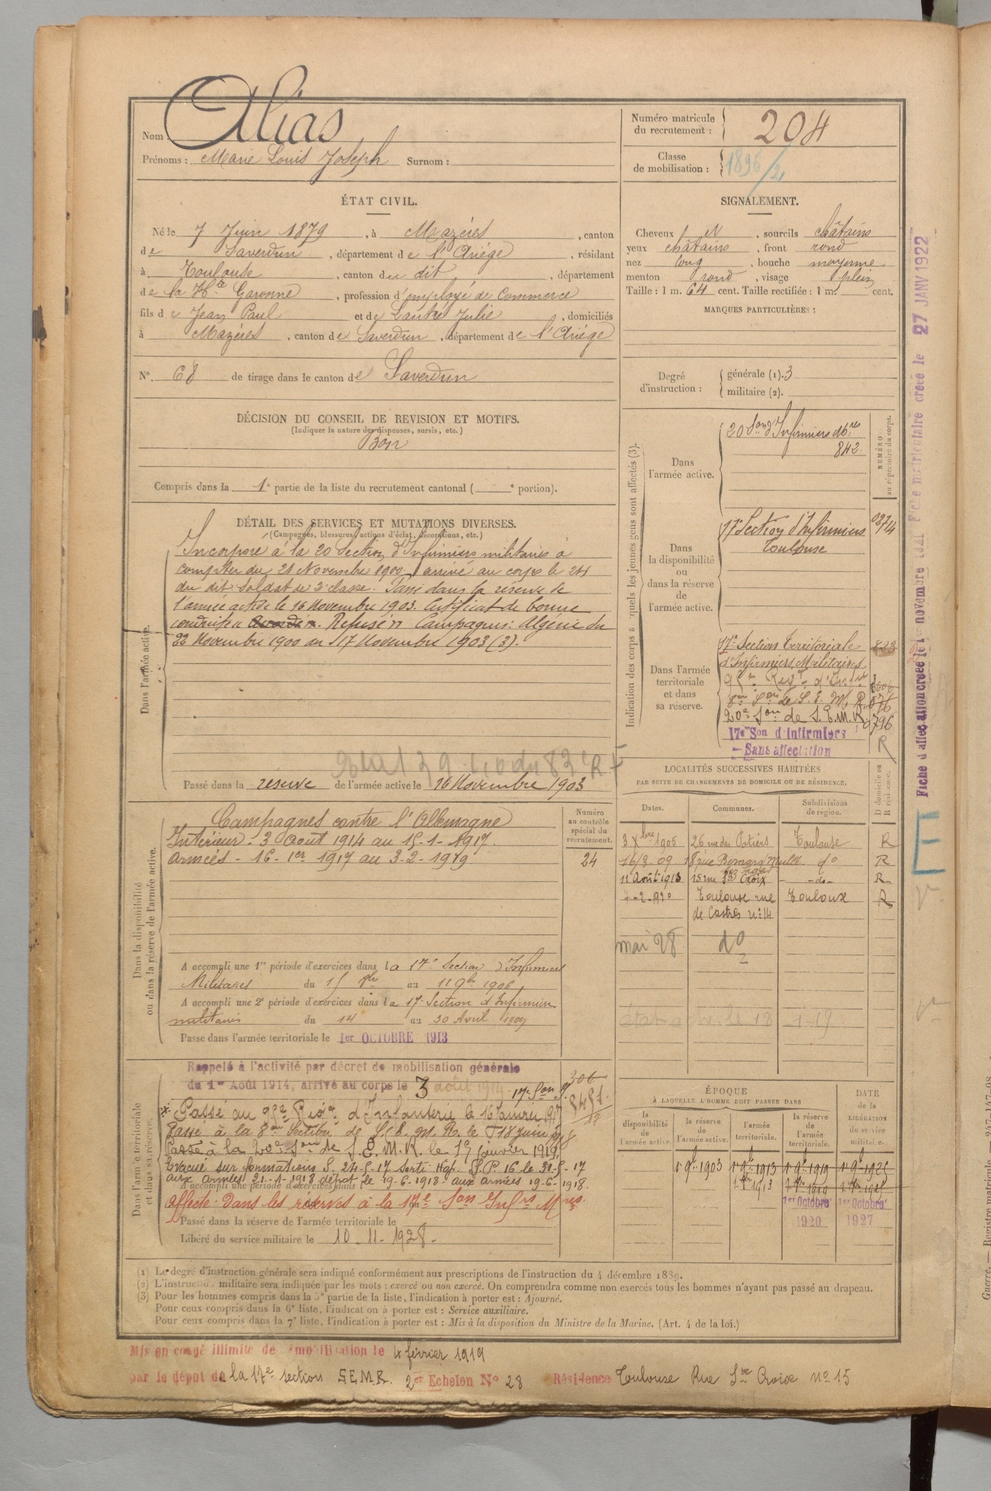 Nom : Alias
Prénoms : Marie Louis Joseph Surnom :
Numéro matricule du recrutement : 204
Classe de mobilisation : 1896/2
ÉTAT CIVIL.
Né le 7 Juin 1879, à Mazères, canton
de Saverdun, département de l'Ariége, résidant
à Toulouse, canton du dit, département
de la Hte Garonne, profession d'employé de Commerce
fils de Jean Paul et de Julie, domiciliés
à Mazères, canton de Saverdun, département de l'Ariége
No. 68 de tirage dans le canton de Saverdun
SIGNALEMENT.
Cheveux N, sourcils châtains
yeux châtains, front rond
nez long, bouche moyenne
menton rond, visage plein
Taille : 1 m. 64 cent. Taille rectifiée : 1 m. cent.
MARQUES PARTICULIÈRES :
Degré d'instruction : générale (1). 3
militaire (2).
DÉCISION DU CONSEIL DE REVISION ET MOTIFS.
(Indiquer la nature des dispenses, sursis, etc.)
Bon
Compris dans la 1e partie de la liste du recrutement cantonal ( e portion).
DÉTAIL DES SERVICES ET MUTATIONS DIVERSES.
(Campagnes, blessures, actions d'éclat, décorations, etc.)
Dans l'armée active.
Incorporé à la 20 Section d'Infirmiers militaires à
compter du 21 Novembre 1900, arrivé au corps le
du dit soldat de 2e classe. Passé dans la réserve de
l'armée active le 16 Novembre 1903. Certificat de bonne
conduite Refusé Campagnes: Algérie du
22 Novembre 1900 au 17 Novembre 1903 (3).
Passé dans la réserve de l'armée active le 16 Novembre 1903
Indication des corps auxquels les jeunes gens sont affectés (3).
NUMÉRO au répertoire du corps.
Dans l'armée active.
20 Son d'Infirmiers
842
Dans la disponibilité ou dans la réserve de l'armée active.
17e Section d'Infirmiers
Toulouse
Dans l'armée territoriale et dans sa réserve.
17e Section Territoriale
d'Infirmiers Militaires
20e Son de S.E.M.R. 0796
17e Son d'infirmiers
— Sans affectation R
Dans la disponibilité ou dans la réserve de l'armée active.
Numéro au contrôle spécial du recrutement.
24
Campagnes contre l'Allemagne
Intérieur - 3 Août 1914 au 15-1-1917.
Armées - 16-1er 1917 au 3-2-1919
A accompli une 1re période d'exercices dans la 17e Section d'Infirmiers
Militaires du 15 au 11 9bre 1906
A accompli une 2e période d'exercices dans la 17 Section d'Infirmiers
militaires du 14 au 30 Avril 1909
Passé dans l'armée territoriale le 1er OCTOBRE 1913
LOCALITÉS SUCCESSIVES HABITÉES
PAR SUITE DE CHANGEMENTS DE DOMICILE OU DE RÉSIDENCE.
D domicile ou R résidence.
Dates. Communes. Subdivisions de région.
3 Xbre 1905 26 rue du Poitiers Toulouse R
16/8 09 do R
11 Août 1913 15 rue Ste Croix -do- R
Toulouse rue de Castres no 14 Toulouse R
mai 28 do
Dans l'armée territoriale et dans sa réserve.
Rappelé à l'activité par décret de mobilisation générale
du 1er Août 1914, arrivé au corps le 3 août 1914
Passé au Régt d'Infanterie le 16 janvier 1917
Passé à la 8me Section de S.E.M.R. le 18 juin 1918
Passé à la 20e Son de S.E.M.R. le 1er février 1919
Evacué sur formations S. 24-5-17
aux armées 21-1-1918 dépôt le 19-6-1918 aux armées 19-6-1918.
A accompli une période d'exercices dans l
Affecté dans les réserves à la 17e Son Infrs Mres
Passé dans la réserve de l'armée territoriale le
Libéré du service militaire le 10-11-1928.
ÉPOQUE
À LAQUELLE L'HOMME DOIT PASSER DANS
la disponibilité de l'armée active. la réserve de l'armée active. l'armée territoriale. la réserve de l'armée territoriale.
DATE de la LIBÉRATION du service militaire.
1er 8bre 1903 1er 8bre 1913 1er 8bre 1919 1er 8bre 1925
1er Octobre 1920 1er Octobre 1927
(1) Le degré d'instruction générale sera indiqué conformément aux prescriptions de l'instruction du 4 décembre 1889.
(2) L'instruction militaire sera indiquée par les mots : exercé ou non exercé. On comprendra comme non exercés tous les hommes n'ayant pas passé au drapeau.
(3) Pour les hommes compris dans la 5e partie de la liste, l'indication à porter est : Ajourné.
Pour ceux compris dans la 6e liste, l'indication à porter est : Service auxiliaire.
Pour ceux compris dans la 7e liste, l'indication à porter est : Mis à la disposition du Ministre de la Marine. (Art. 4 de la loi.)
Mis en congé illimité de démobilisation le 4 février 1919
par le dépôt de la 17e section S.E.M.R. 2e Echelon No 28 Résidence Toulouse Rue Ste Croix no 15
Fiche d'affectation créée le 1 novembre 1921 Fiche matriculaire créée le 27 JANV 1922